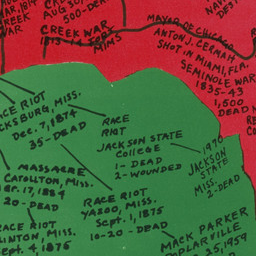 WAR. 1814
CREEK
WAR
AUG 30,
500-DEAD
CREEK WAR
1813-14 FORT
MIMS
MAYOR OF CHICAGO
ANTON J. CERMAK
SHOT IN MIAMI, FLA.
SEMINOLE WAR
1835-43
1,500
DEAD
NAV
DES
RACE RIOT
VICKSBURG, MISS.
Dec. 7, 1874
35-DEAD
RACE
RIOT
JACKSON STATE
College
1-DEAD
2-WOUNDED
1970
JACKSON
STATE
MISS.
2-DEAD
MASSACRE
CARROLLTON, MISS.
Mar. 17, 1886
20-DEAD
RACE RIOT
YAZOO, MISS.
Sept. 1, 1875
10-20-DEAD
RACE RIOT
CLINTON, MISS.
Sept. 4, 1875
MACK PARKER
POPLARVILLE
25, 1959